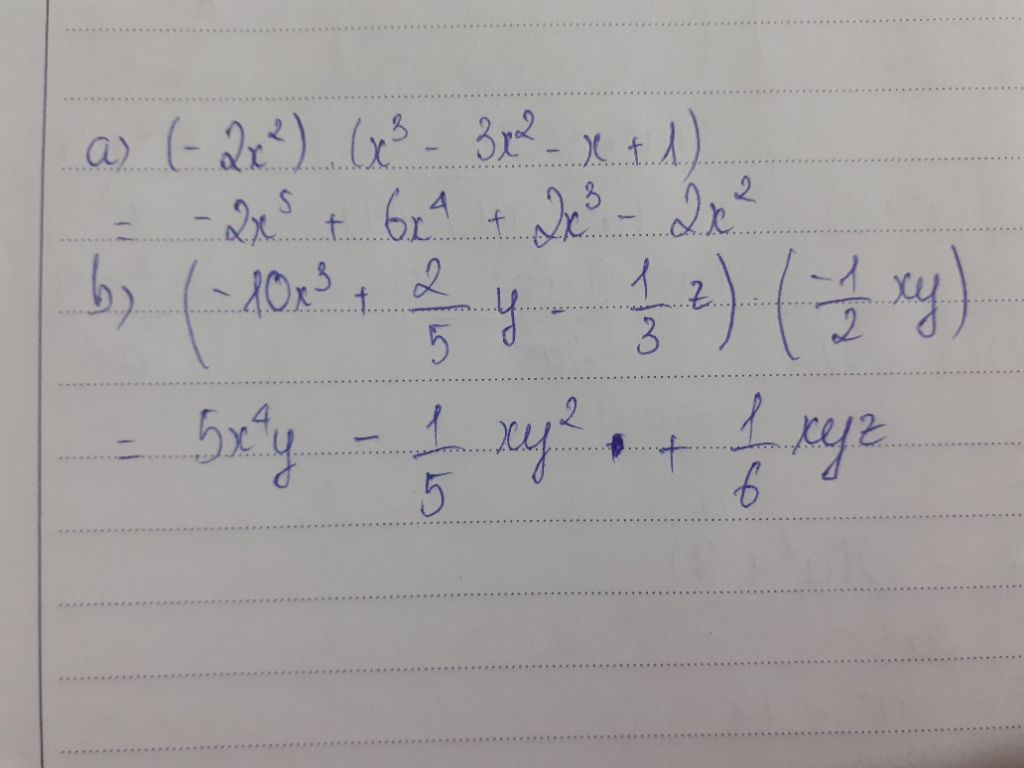 a) (- 2x²) . (x³ - 3x² - x + 1)
= - 2x⁵ + 6x⁴ + 2x³ - 2x²
b) (-10x³ + 2/5 y - 1/3 z) . (-1/2 xy)
= 5x⁴y - 1/5 xy² + 1/6 xyz